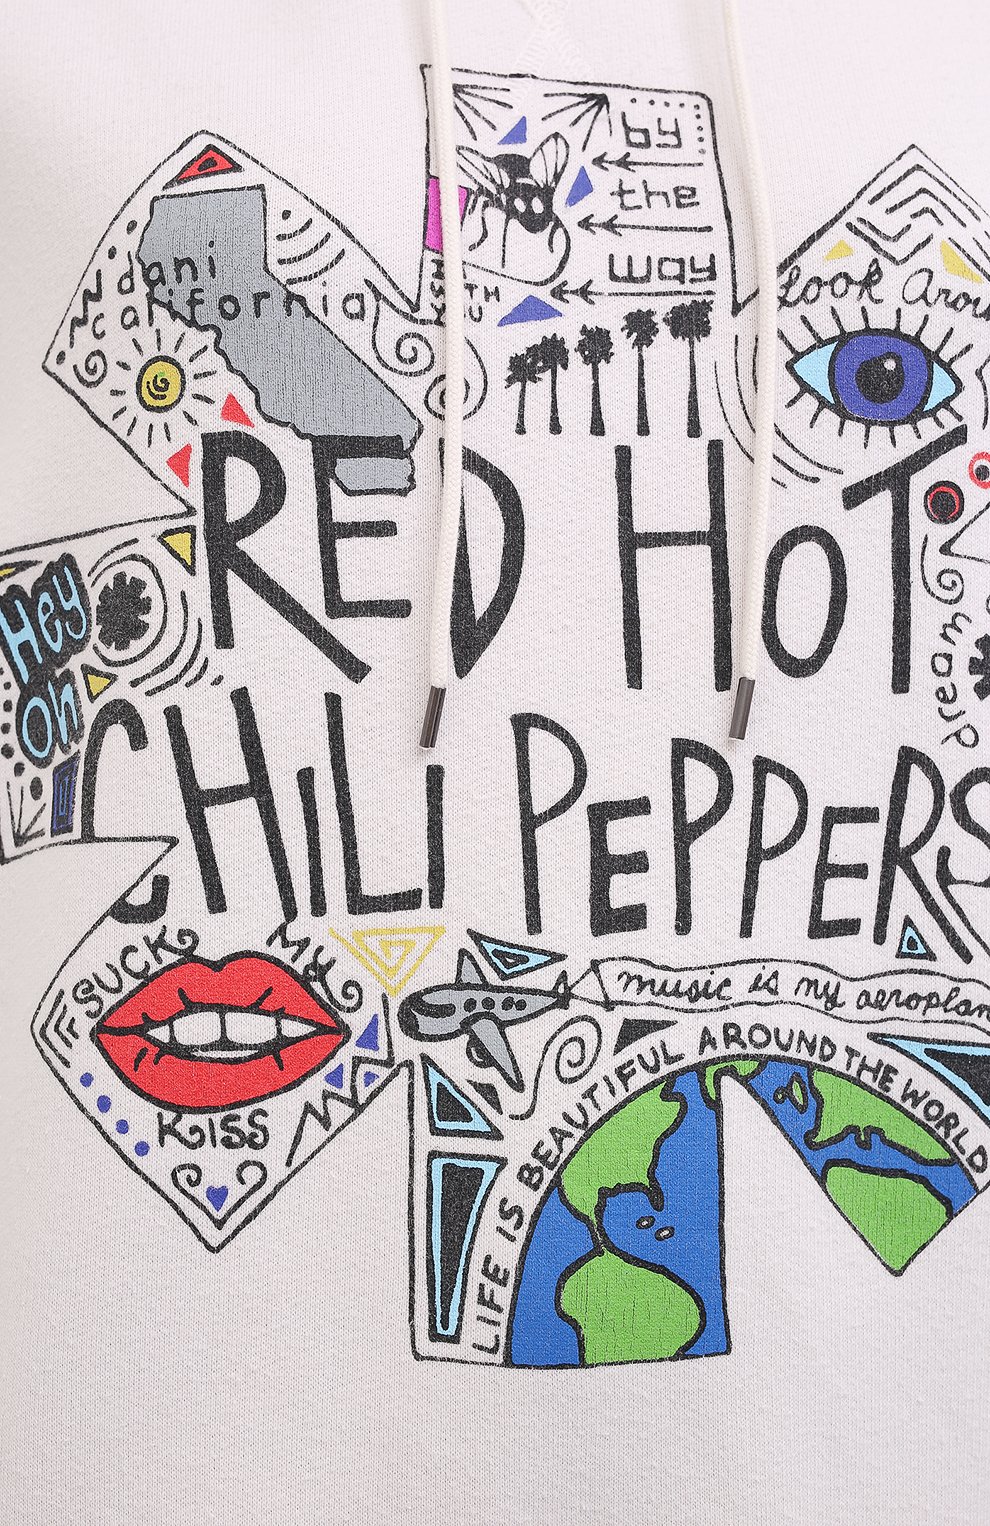 by
the
way
dani
california
Look Arou
RED HOT
Hey
Oh
Dream
CHILI PEPPERS
SUCK MY
KISS
music is my aeroplan
LIFE IS BEAUTIFUL AROUND THE WORLD